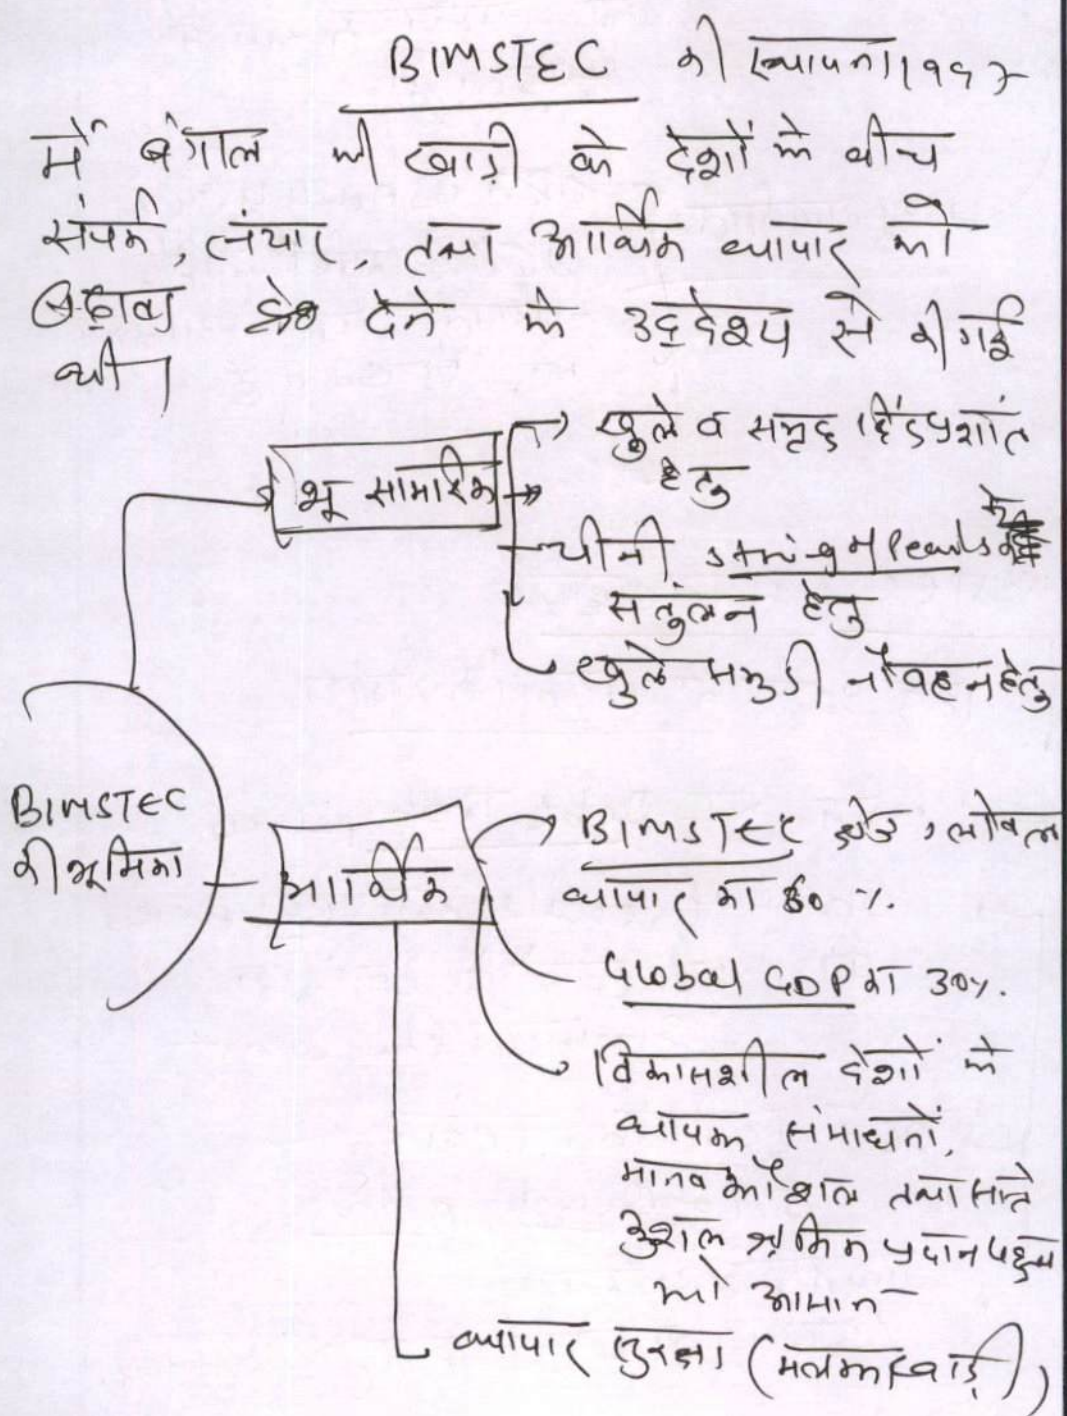 BIMSTEC की स्थापना 1997
में बंगाल की खाड़ी के देशों के बीच
संपर्क, संचार, तथा आर्थिक व्यापार को
बढ़ावा देने के उद्देश्य से की गई
थी।
भू सामरिक
→ खुले व समृद्ध हिंद प्रशांत
हेतु
चीनी string of Pearls के
संतुलन हेतु
खुले समुद्री नौवहन हेतु
BIMSTEC
की भूमिका
आर्थिक
→ BIMSTEC क्षेत्र, ग्लोबल
व्यापार का 80 %.
Global GDP का 30%.
विकासशील देशों के
व्यापक संसाधनों,
मानव कौशल तथा सस्ते
कुशल श्रमिक प्रदान पहुँच
को आसान
व्यापार सुरक्षा (मलक्का खाड़ी)